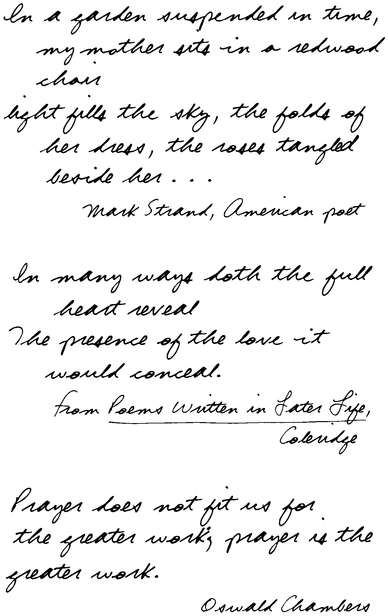 In a garden suspended in time,
my mother sits in a redwood
chair
light fills the sky, the folds of
her dress, the roses tangled
beside her . . .
Mark Strand, American poet
In many ways doth the full
heart reveal
The presence of the love it
would conceal.
From Poems Written in Later Life,
Coleridge
Prayer does not fit us for
the greater work; prayer is the
greater work.
Oswald Chambers